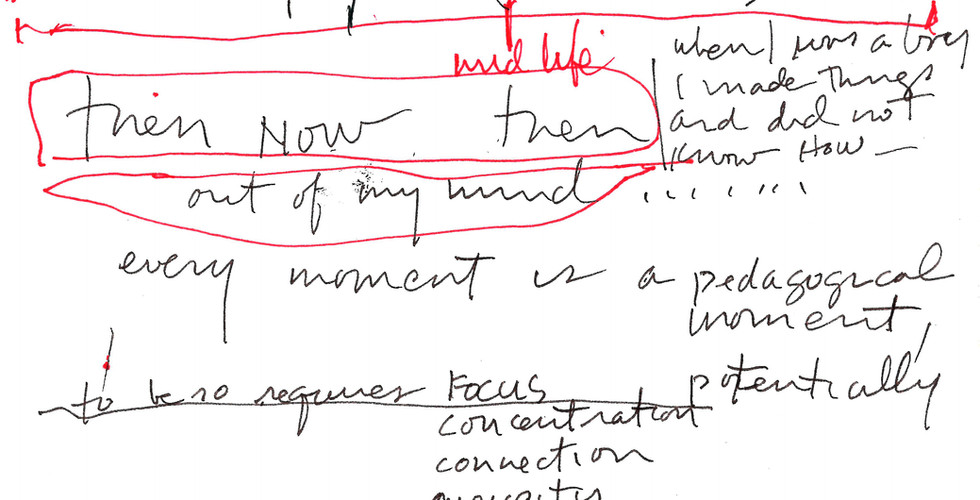 mid life
when I was a boy
I made things
and did not
know how —
then now then
out of my mind
every moment is a pedagogical
moment,
potentially
to be so requires FOCUS
concentration
connection
curiosity